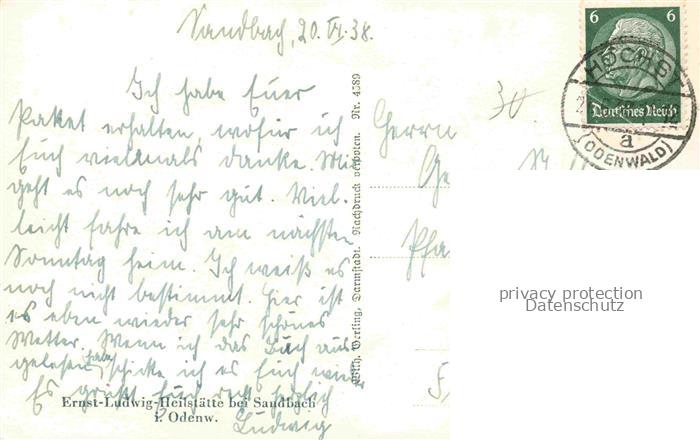 Sandbach, 20. VI. 38.
Ich habe Euer
Paket erhalten, wofür ich
Euch vielmals danke. Mir
geht es noch sehr gut. Viel-
leicht fahre ich am nächsten
Sonntag heim. Ich weiß es
noch nicht bestimmt. Hier ist
es eben wieder sehr schönes
Wetter. Wenn ich das Buch aus-
gelesen habe, schicke ich es Euch wieder
Es grüßt Euch recht herzlich
Ludwig
Ernst-Ludwig-Heilstätte bei Sandbach
i. Odenw.
Wilh. Gerling, Darmstadt. Nachdruck verboten. Nr. 4389
30
Herrn
Ge
Pfa
6 6
Deutsches Reich
HÖCHST
a
(ODENWALD)
privacy protection
Datenschutz